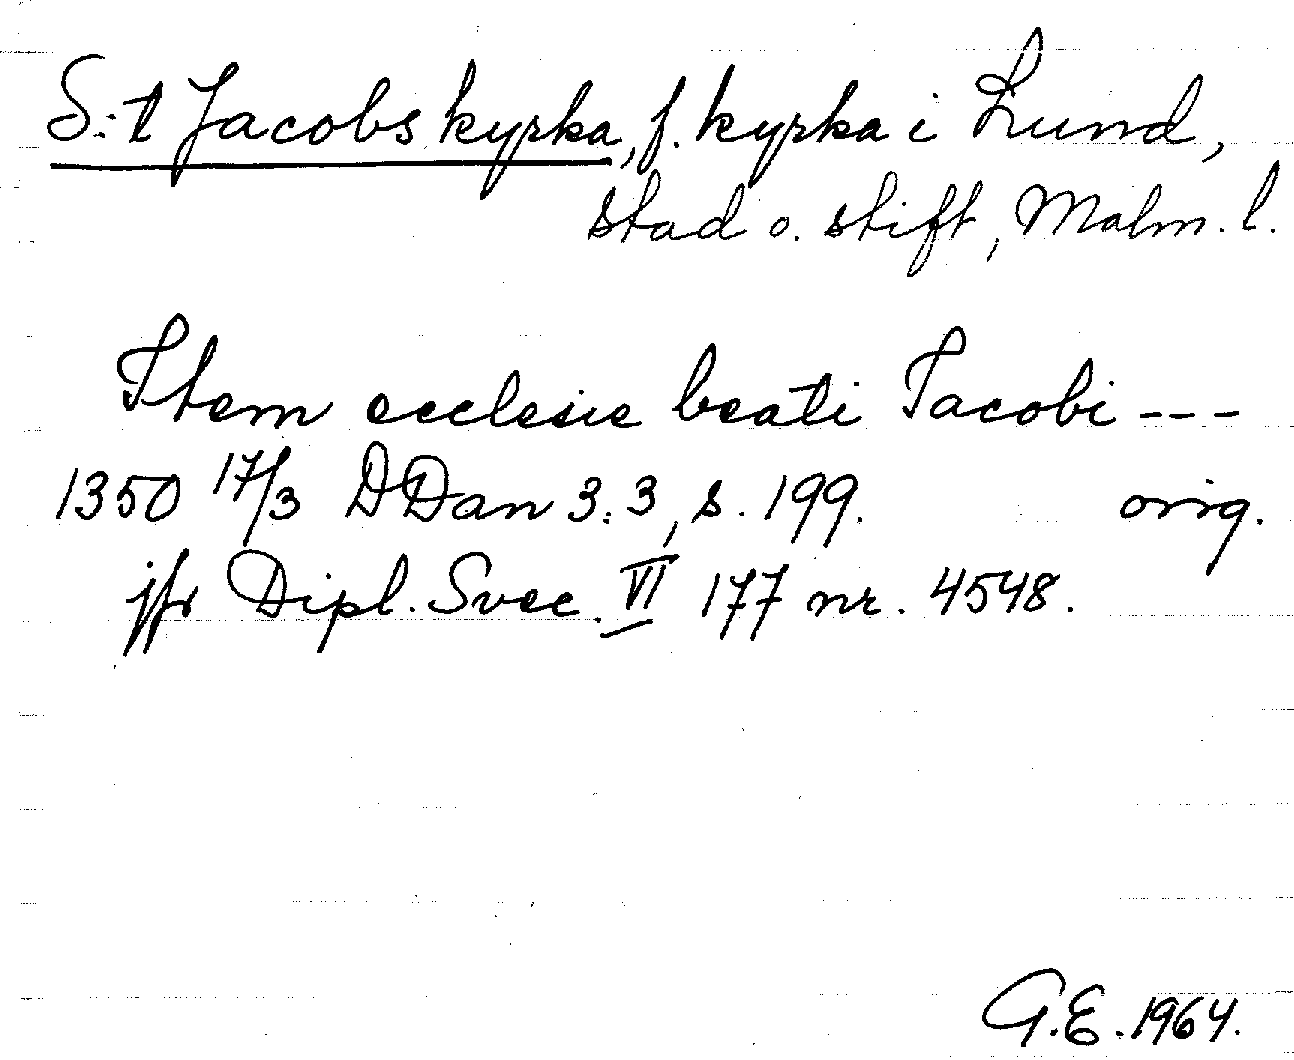 S:t Jacobs kyrka, f. kyrka i Lund,
stad o. stift, Malm. l.
Item ecclesie beati Iacobi ---
1350 17/3 DDan 3:3, s. 199. orig.
jfr Dipl. Svec. VI 177 nr. 4548.
G.E. 1964.